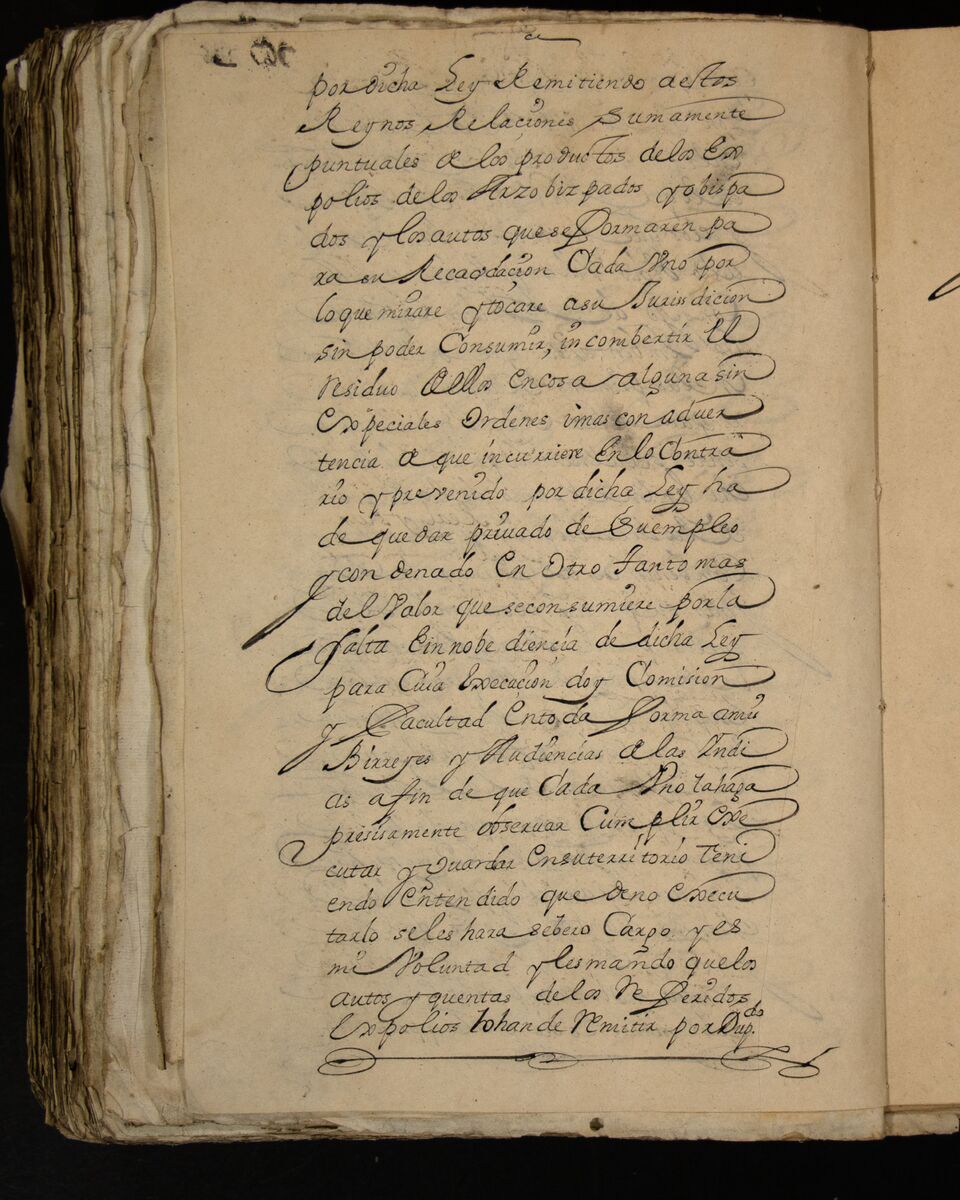 por dicha Ley Remitiendo aestos
Reynos Relaciones Sumamente
puntuales de los productos delos Ex
polios delos Arzobizpados y obispa
dos y los autos que se formaren pa
ra su Recaudacion Cada Uno por
lo que mirare y tocare a su Jurisdicion
sin poder Consumir, in combertir El
residuo de ellos en cosa alguna sin
Expeciales Ordenes imas con adver
tencia de que incurriere En lo Contra
rio y prevenido por dicha Ley ha
de quedar privado de Suempleo
y con denado En Otro tanto mas
del Valor que se consumiere por la
falta Einnobe diencia de dicha Ley
para Cuia Execucion doy Comision
y Facultad En toda forma amis
Birreyes y Audiencias de las Indi
as afin de que Cada Uno la haga
presisamente observar Cumplir Exe
cutar y Guardar En su territorio Teni
endo Entendido que deno Execu
tarlo se les hara sebero Cargo y es
mi Voluntad y les mando que los
autos y quentas de los Referidos
Expolios lo han de Remitir por Dup.do